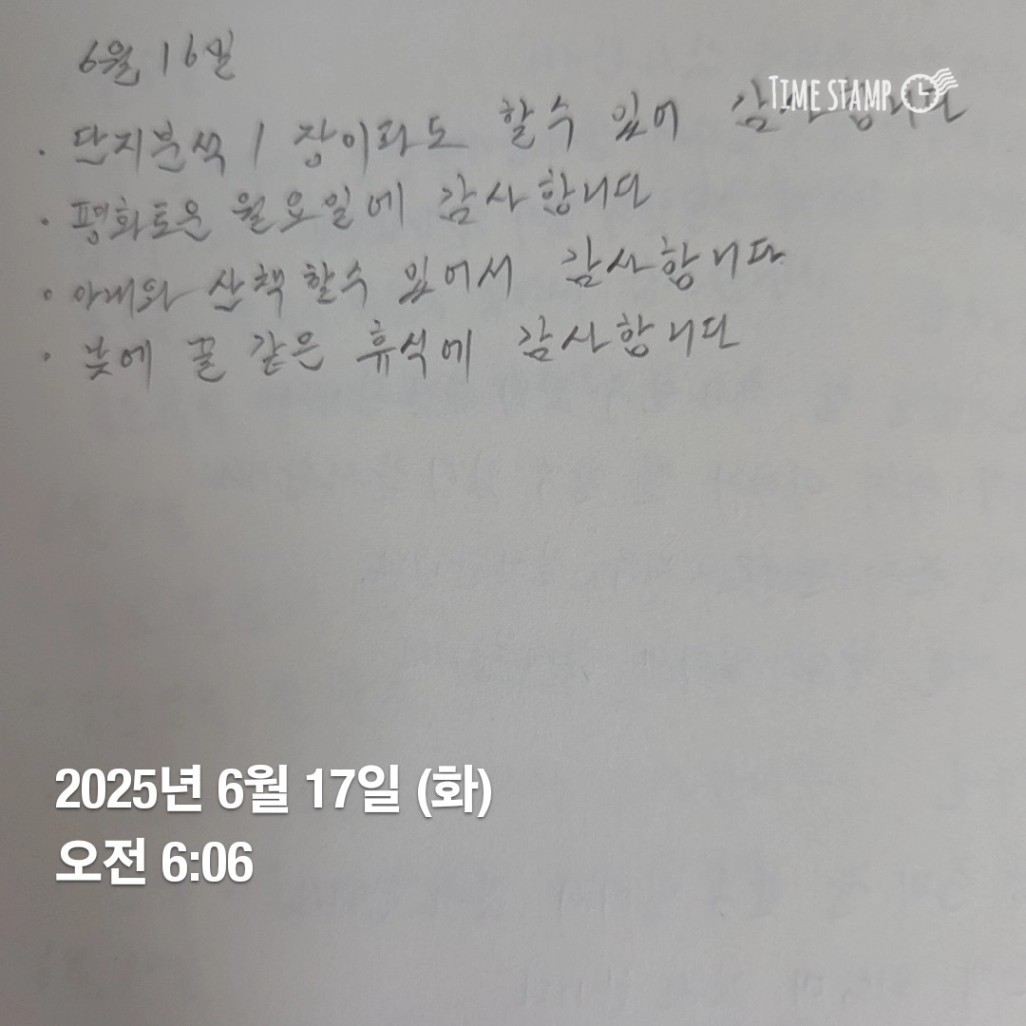 6월 16일
TIME STAMP
· 단지분석 1장이라도 할수 있어 감사합니다
· 평화로운 월요일에 감사합니다
· 아내와 산책 할수 있어서 감사합니다
· 낮에 꿀 같은 휴식에 감사합니다
2025년 6월 17일 (화)
오전 6:06